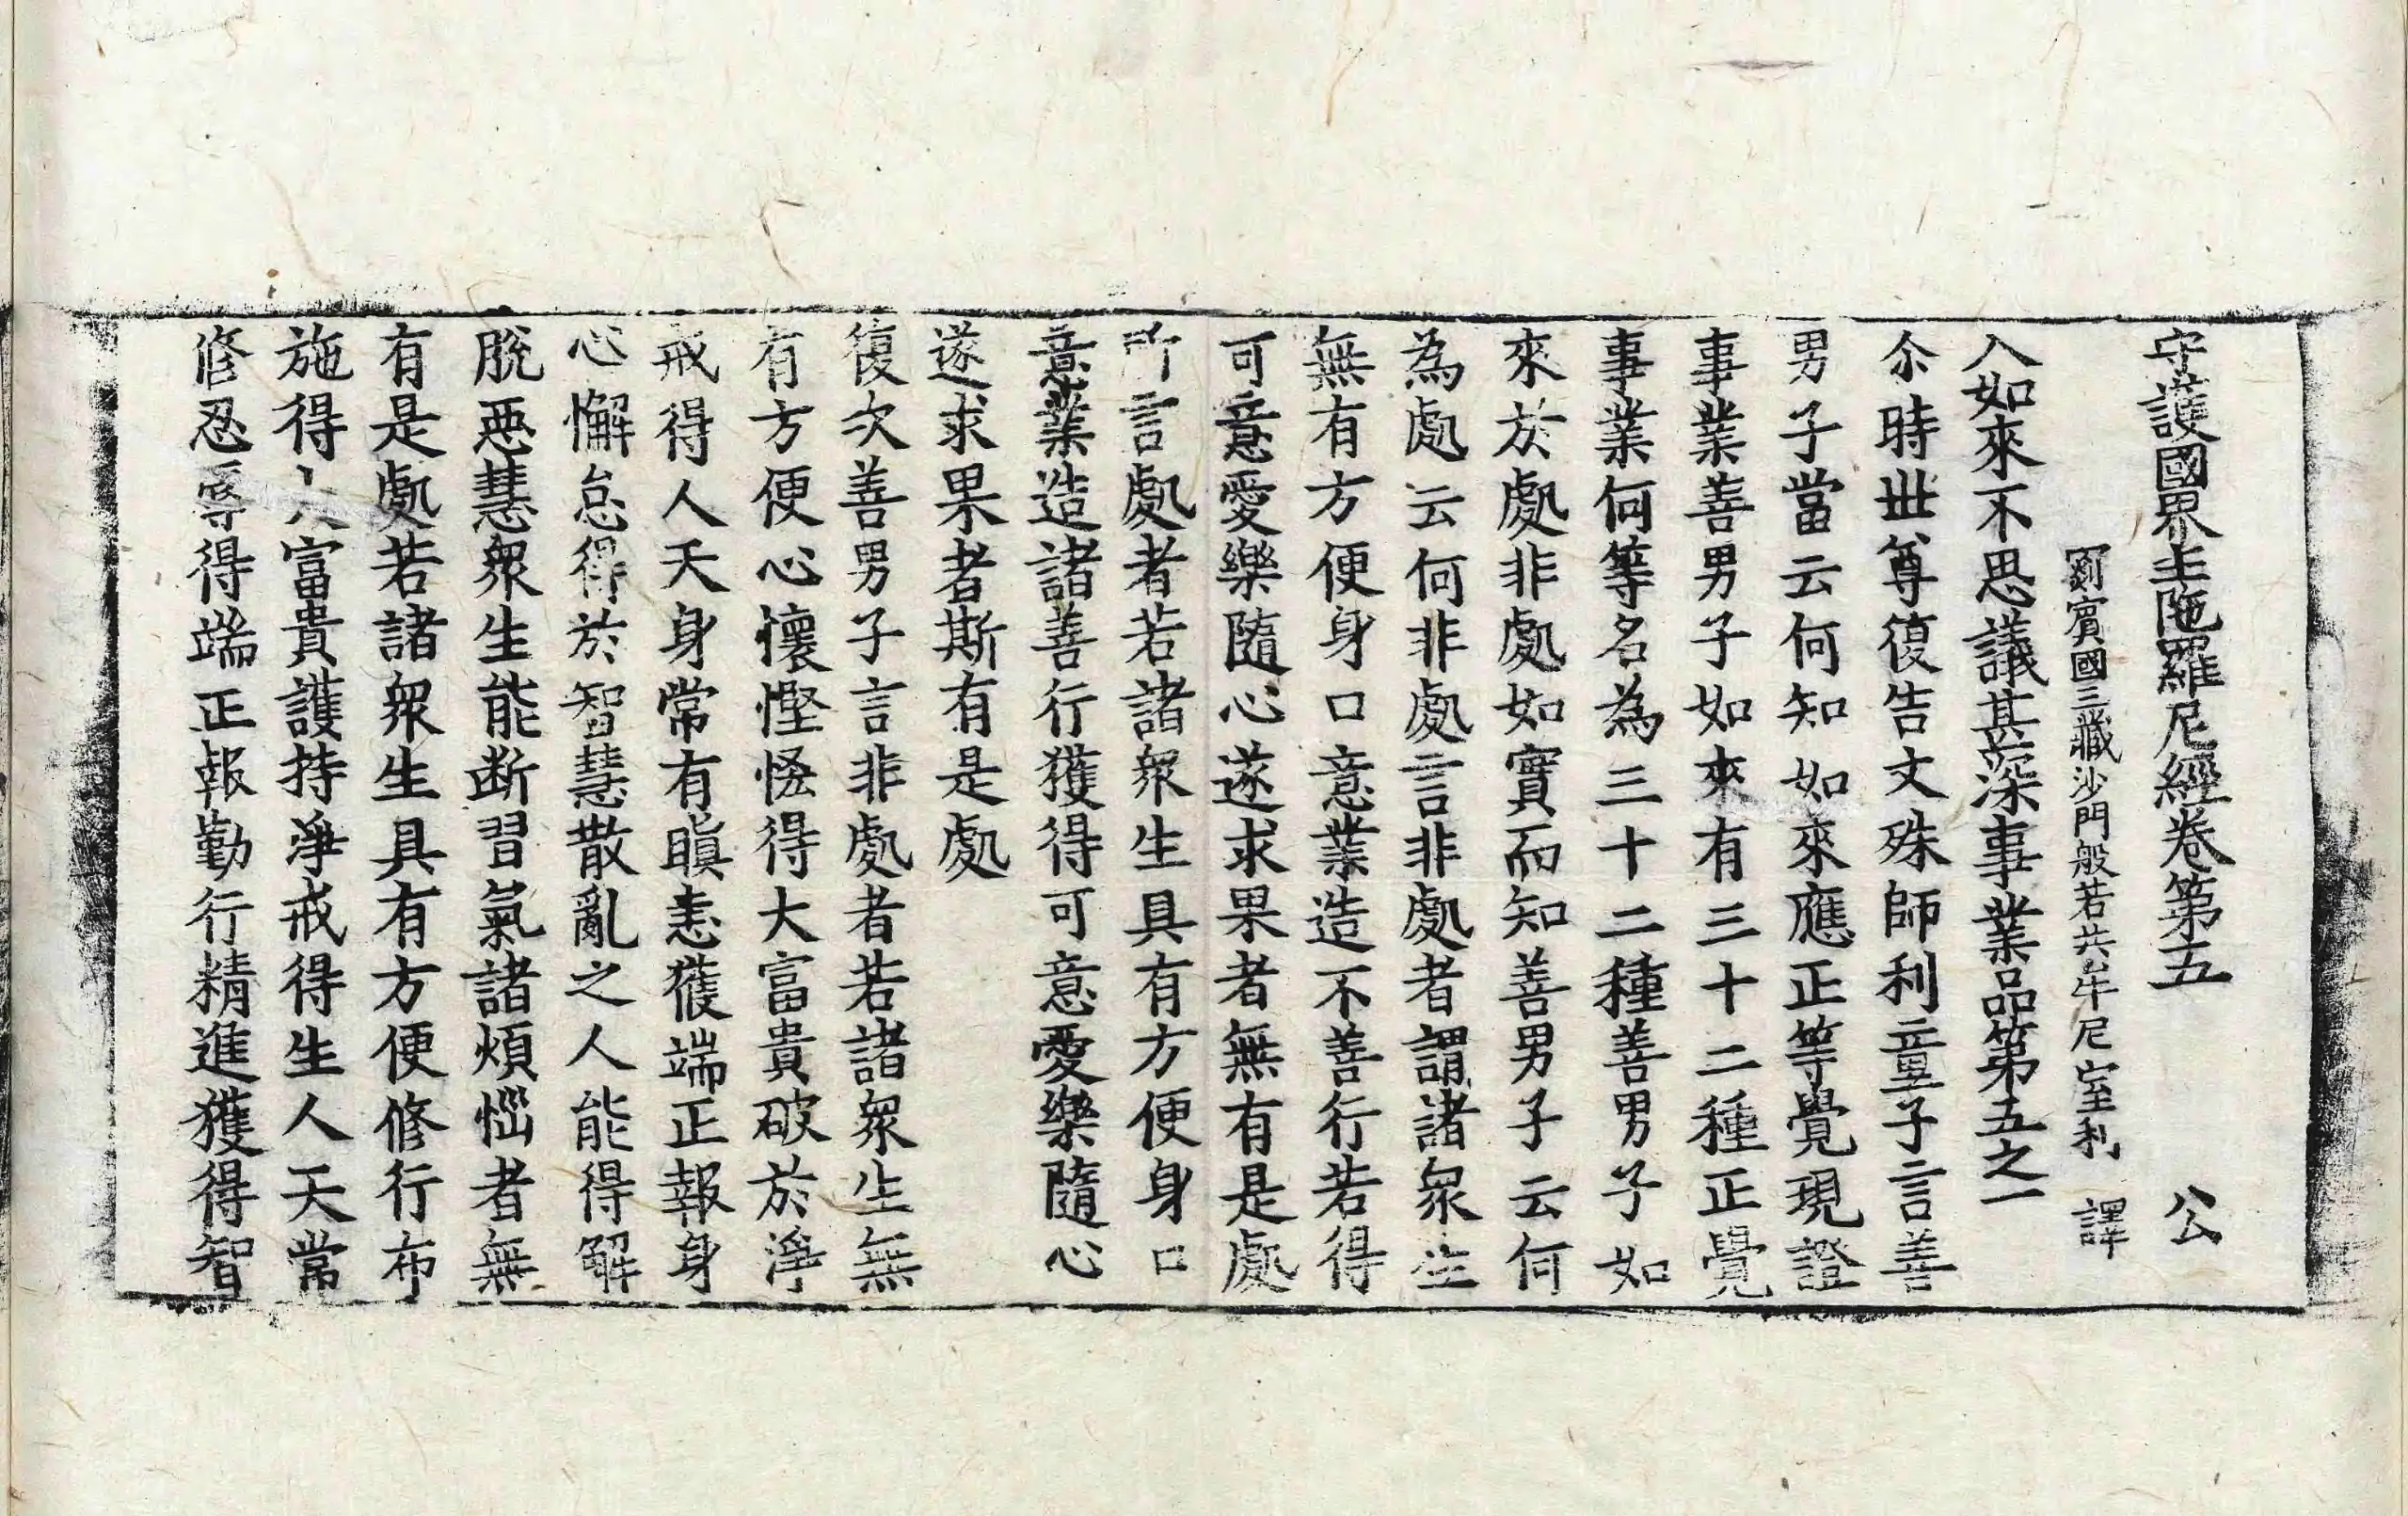 守護國界主陁羅尼經卷第五 公
罽賓國三藏沙門般若共牟尼室利 譯
入如來不思議甚深事業品第五之一
尒時世尊復告文殊師利童子言善
男子當云何知如來應正等覺現證
事業善男子如來有三十二種正覺
事業何等名為三十二種善男子如
來於處非處如實而知善男子云何
為處云何非處言非處者謂諸衆生
無有方便身口意業造不善行若得
可意愛樂隨心遂求果者無有是處
所言處者若諸衆生具有方便身口
意業造諸善行獲得可意愛樂隨心
遂求果者斯有是處
復次善男子言非處者若諸衆生無
有方便心懷慳悋得大富貴破於淨
戒得人天身常有瞋恚獲端正報身
心懈怠得於智慧散亂之人能得解
脫惡慧衆生能断習氣諸煩惱者無
有是處若諸衆生具有方便修行布
施得大富貴護持淨戒得生人天常
修忍辱得端正報勤行精進獲得智